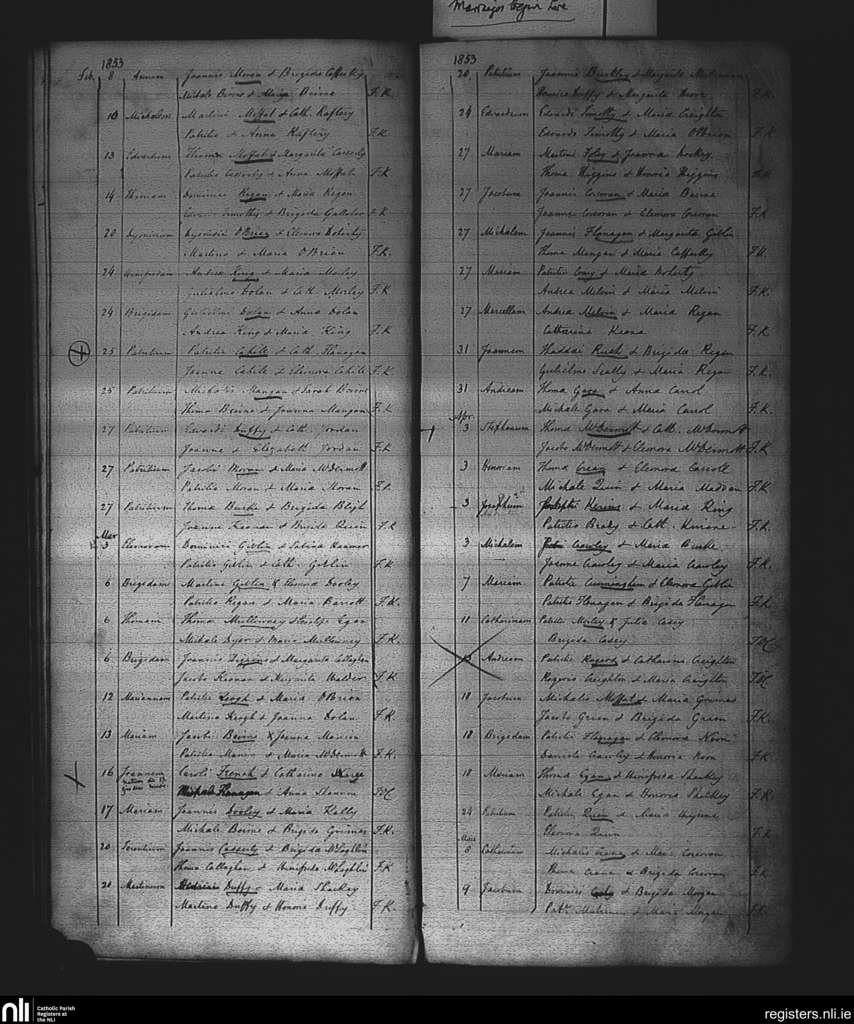 Marriages begin here
1853
Feb. 8 Annam Joannis Moran & Brigida Cafferky
Michale Beirne & Maria Beirne F.K.
10 Michaelem Martini Moffat & Cath. Raftery
Patritio & Anna Raftery F.K
13 Edwardum Thoma Moffat & Margarita Casserly
Patritio Casserly & Anna Moffat F.K
14 Thomam Dominici Regan & Maria Regan
Timothy & Brigida Gallaher F.K
20 O'Brien & Elenora Doherty
Martino & Maria O'Brien F.K.
24 Andrea King & Maria Morley
Gulielmo Dolan & Cath. Morley F.K
24 Brigidam Gulielmi Dolan & Anna Dolan
Andrea King & Maria King F.K
25 Patritium Patritii Cahile & Cath. Flanagan
Joanne Cahile & Elenora Cahile F.K
25 Patritium Michalis Mangan & Sarah Beirne
Thoma Beirne & Joanna Mangan F.K
27 Patritium Edwardi Duffy & Cath. Jordan
Joanne & Elizabeth Jordan F.K
27 Patritium Jacobi Moran & Maria McDermott
Patritio Moran & Maria Moran F.K.
27 Patritium Thoma Burke & Brigida Bligh
Joanne Keenan & Brigida Quinn F.K
Mar
3 Elenoram Dominici Giblin & Sabina
Patritio Giblin & Cath. Giblin F.K.
6 Brigidam Martini Giblin & Elenora Dooley
Patritio Regan & Maria Barrett F.K.
6 Thomam Thoma Mullenney & Egan
Michale Dyer & Maria Mullenney F.K.
6 Brigidam Joannis & Margarita Callaghan
Jacobo Keenan & Margarita F.K
12 Mariannam Patritii Keogh & Maria O'Brien
Martino Keogh & Joanna Dolan F.K.
13 Mariam Jacobi Beirne & Joanna
Patritio & Maria McDermott F.K.
16 Joannem Caroli French & Catharina
Michale Flanagan & Anna
17 Mariam Joannis Dooley & Maria Kelly
Michale Beirne & Brigida F.K.
20 Joannis Casserly & Brigida McLoghlin
Thoma Callaghan & Winifreda McLoghlin F.K
20 Martinum Duffy & Maria Sharkey
Martino Duffy & Honora Duffy F.K.
1853
20. Patritium Joannis Buckley & Margarita
Duffy & Margarita F.K.
24 Edwardum Edwardi Timothy & Maria Creighton
Edwardo Timothy & Maria O'Brien F.K
27 Mariam Martini Foley & Joanna
Thoma Higgins & Honora Higgins F.K
27 Jacobum Joannis Corcoran & Maria Beirne
Joanne Corcoran & Elenora Corcoran F.K
27 Michalem Joannis Flanagan & Margarita Giblin
Thoma Mangan & Maria Cafferkey F.K.
27 Mariam Patritii & Maria Doherty
Andrea Melvin & Maria Melvin F.K.
27 Marcellam Andrea Melvin & Maria Regan
Catharina Keena F.K
31 Joannem Thaddai Rush & Brigida Regan
Gulielmo Scally & Maria Regan F.K.
31 Andream Thoma Gara & Anna Carrol
Michale Gara & Maria Carrol F.K.
Apr.
3 Stephanum Thoma McDermott & Cath. McDermott
Jacobo McDermott & Elenora McDermott F.K
3 Honoram Thoma & Elenora Carroll
Michale Quin & Maria Madden F.K
3 Josephum Josephi & Maria King
Patritio Brady & Cath. F.K.
3 Michalem Crawley & Maria Burke
Joanne Crawley & Maria Crawley F.K.
7 Mariam Patritii Cunningham & Elenora Giblin
Patritio Flanagan & Brigida Flanagan F.K
11 Catharinam Patritii Morley & Julia Casey
Brigida Casey
Andream Patritii Rogers & Catharina Creighton
Rogerio Creighton & Maria Creighton
18 Jacobum Michalis Moffat & Maria
Jacobo Green & Brigida Green F.K.
18 Brigidam Patritii Flanagan & Elenora Noon
Daniele Crawley & Honora Noon F.K
18 Mariam Thoma Egan & Winifreda Sharkey
Michale Egan & Honora Sharkey F.K
24 Patritium Patritii Quin & Maria
Elenora Quin F.K
Maii
8 Catharinam Michalis & Maria Corcoran
Thoma & Brigida Corcoran F.K
9 Jacobum Dominici & Brigida Morgan
& Maria Morgan F.K
nli
Catholic Parish
Registers at
the NLI
registers.nli.ie